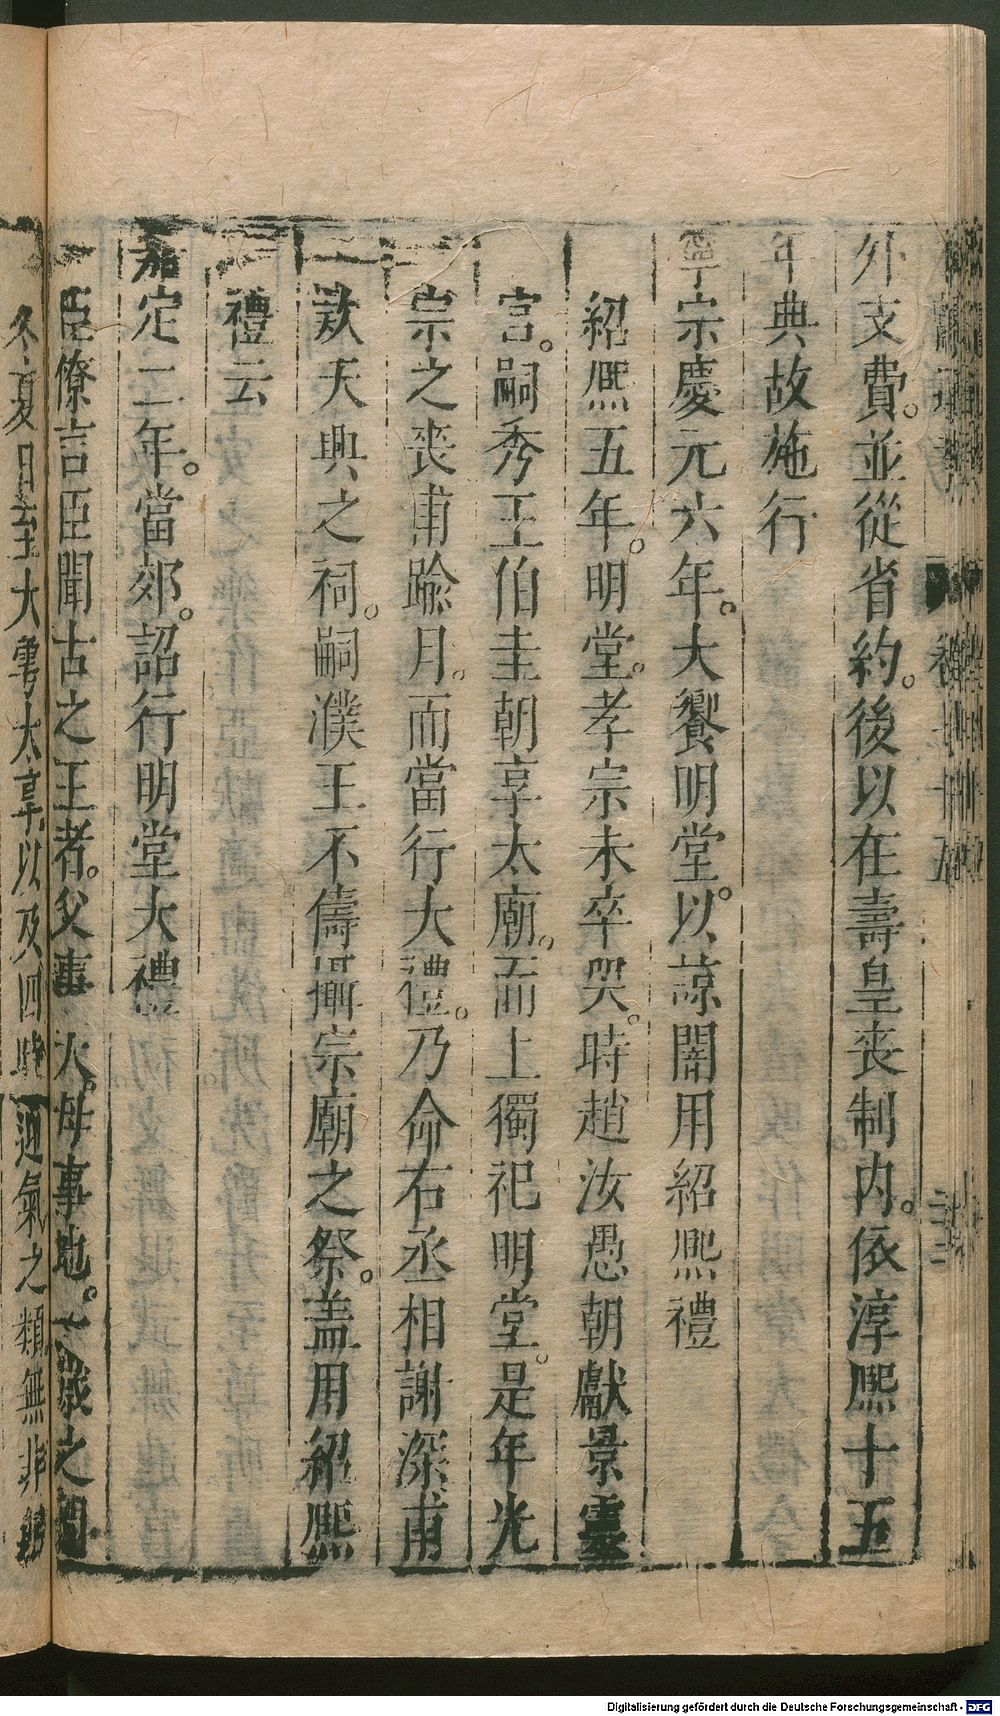 外支費並從省約後以在壽皇喪制内依淳熙十五
年典故施行
寧宗慶元六年大饗明堂以諒闇用紹熙禮
紹熙五年明堂孝宗未卒哭時趙汝愚朝獻景靈
宮嗣秀王伯圭朝享太廟而上獨祀明堂是年光
宗之喪甫踰月而當行大禮乃命右丞相謝深甫
款天興之祠嗣濮王不儔攝宗廟之祭蓋用紹熙
禮云
嘉定二年當郊詔行明堂大禮
臣僚言臣聞古之王者父事天母事地一歲之間
冬夏日至大雩大享以及四時迎氣之類無非
Digitalisierung gefördert durch die Deutsche Forschungsgemeinschaft - DFG